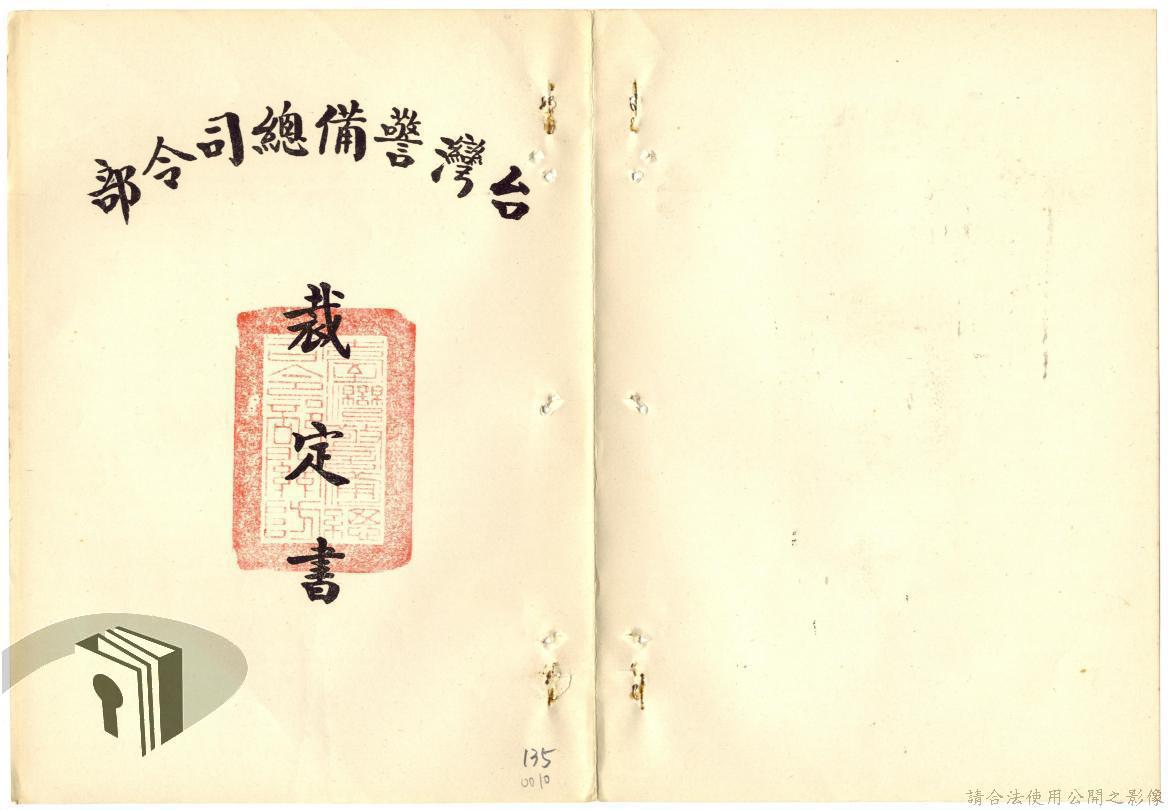 台灣警備總司令部
裁定書
135
0010
請合法使用公開之影像